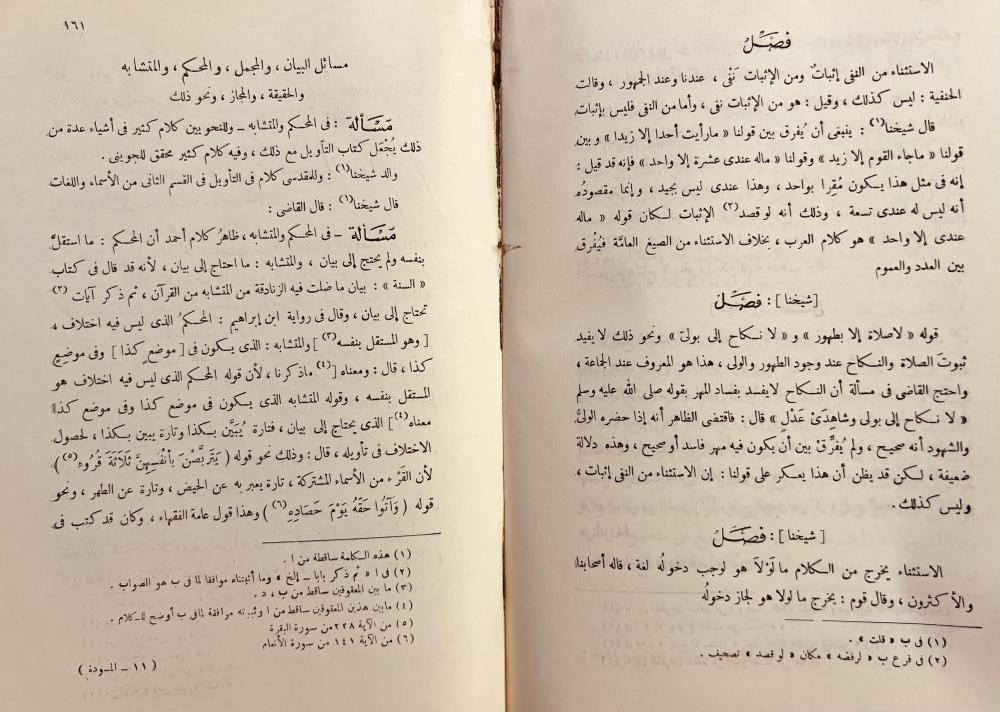 فصل
الاستثناء من النفى إثباتٌ ومن الإثبات نَفْى ، عندنا وعند الجمهور ، وقالت
الحنفية : ليس كذلك ، وقيل : هو من الإثبات نفى ، وأما من النفى فليس بإثبات
قال شيخنا(١) : ينبغى أن يُفرق بين قولنا « مارأيت أحدا إلا زيدا » وبين
قولنا « ماجاء القوم إلا زيد » وقولنا « ماله عندى عشرة إلا واحد » فإنه قد قيل :
إنه فى مثل هذا يكون مُقِرا بواحد ، وهذا عندى ليس بجيد ، وإنما مقصودُه
أنه ليس له عندى تسعة ، وذلك أنه لو قصد(٢) الإثبات لكان قوله « ماله
عندى إلا واحد » هو كلام العرب ، بخلاف الاستثناء من الصيغ العامَّة فيُفْرق
بين العدد والعموم
[شيخنا] : فصل
قوله « لاصلاة إلا بطهور » و « لا نكاح إلى بولىّ » ونحو ذلك لايفيد
ثبوتَ الصلاة والنكاح عند وجود الطهور والولى ، هذا هو المعروف عند الجماعة ،
واحتج القاضى فى مسألة أن النكاح لايفسد بفساد المهر بقوله صلى الله عليه وسلم
« لا نكاح إلى بولى وشاهِدَىْ عَدْلٍ » قال : فاقتضى الظاهر أنه إذا حضره الولىُّ
والشهود أنه صحيح ، ولم يُفرِّقْ بين أن يكون فيه مهر فاسد أو صحيح ، وهذه دلالة
ضعيفة ، لكن قد يظن أن هذا يعكر على قولنا : إن الاستثناء من النفى إثبات ،
وليس كذلك .
[ شيخنا ] : فصل
الاستثناء يخرج من الكلام مالَوْلاَ هو لوجب دخولُه لغة ، قاله أصحابنا
والأكثرون ، وقال قوم : يخرج ما لولا هو لجاز دخولُه
(١) فى ب « قلت » .
(٢) فى فرع ب « لرفضه » مكان « لو قصد » تصحيف .
١٦١
مسائل البيان ، والمجمل ، والمحكم ، والمتشابه
والحقيقة ، والمجاز ، ونحو ذلك
مَسْألة : فى المحكم والمتشابه – وللنحويين كلام كثير فى أشياء عدة من
ذلك يُجْعَل كتاب التأويل مع ذلك ، وفيه كلام كثير محقق للجوينى .
والد شيخنا(١) : وللمقدسى كلام فى التأويل فى القسم الثانى من الأسماء واللغات
قال شيخنا(١) : قال القاضى :
مَسْألة – فى المحكم والمتشابه ، ظاهرُ كلام أحمد أن المحكم : ما استقلَّ
بنفسه ولم يحتج إلى بيان ، والمتشابه : ما احتاج إلى بيان ، لأنه قد قال فى كتاب
« السنة » : بيان ما ضلت فيه الزنادقة من المتشابه من القرآن ، ثم ذكر آيات (٢)
تحتاج إلى بيان ، وقال فى رواية ابن إبراهيم : المحكمُ الذى ليس فيه اختلاف ،
[ وهو المستقل بنفسه(٣) ] والمتشابه : الذى يكون فى [ موضع كذا ] وفى موضِعٍ
كذا ، قال : ومعناه [(٤) ماذكرنا ، لأن قوله المحكم الذى ليس فيه اختلاف هو
المستقل بنفسه ، وقوله المتشابه الذى يكون فى موضع كذا وفى موضع كذا
معناه(٤)] الذى يحتاج إلى بيان ، فتارة يُبَيَّن بكذا وتارة يبين بكذا ، لحصول
الاختلاف فى تأويله ، قال : وذلك نحو قوله ( يَتَرَبَّصْنَ بِأَنْفُسِهِنَّ ثَلاَثَةَ قُرُوءٍ (٥) )
لأن القَرْء من الأسماء المشتركة ، تارة يعبر به عن الحيض ، وتارة عن الطهر ، ونحو
قوله ( وَآتُوا حَقَّهُ يَوْمَ حَصَادِهِ(٦) ) وهذا قول عامة الفقهاء ، وكان قد كتب فى
(١) هذه الكلمة ساقطة من ا .
(٢) فى ا « ثم ذكر بابا – إلخ » وما أثبتناه موافقا لما فى ب هو الصواب .
(٣) ما بين المعقوفين ساقط من ب ، د .
(٤) مابين هذين المعقوفين ساقط من ا وثبوته موافقة لما فى ب أوضح للكلام .
(٥) من الآية ٢٢٨ من سورة البقرة
(٦) من الآية ١٤١ من سورة الأنعام
( ١١ – المسودة )